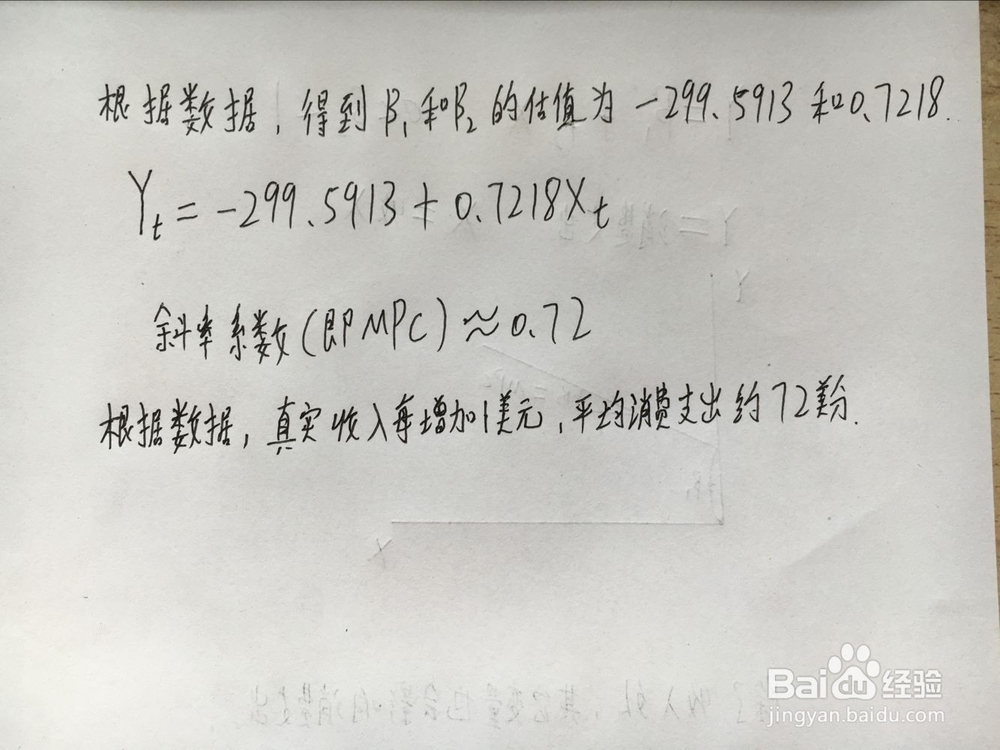 根据数据，得到β₁和β₂的估值为-299.5913和0.7218.
Yₜ=-299.5913+0.7218Xₜ
斜率系数(即MPC)≈0.72
根据数据，真实收入每增加1美元，平均消费支出约72美分.
Baidu经验
jingyan.baidu.com